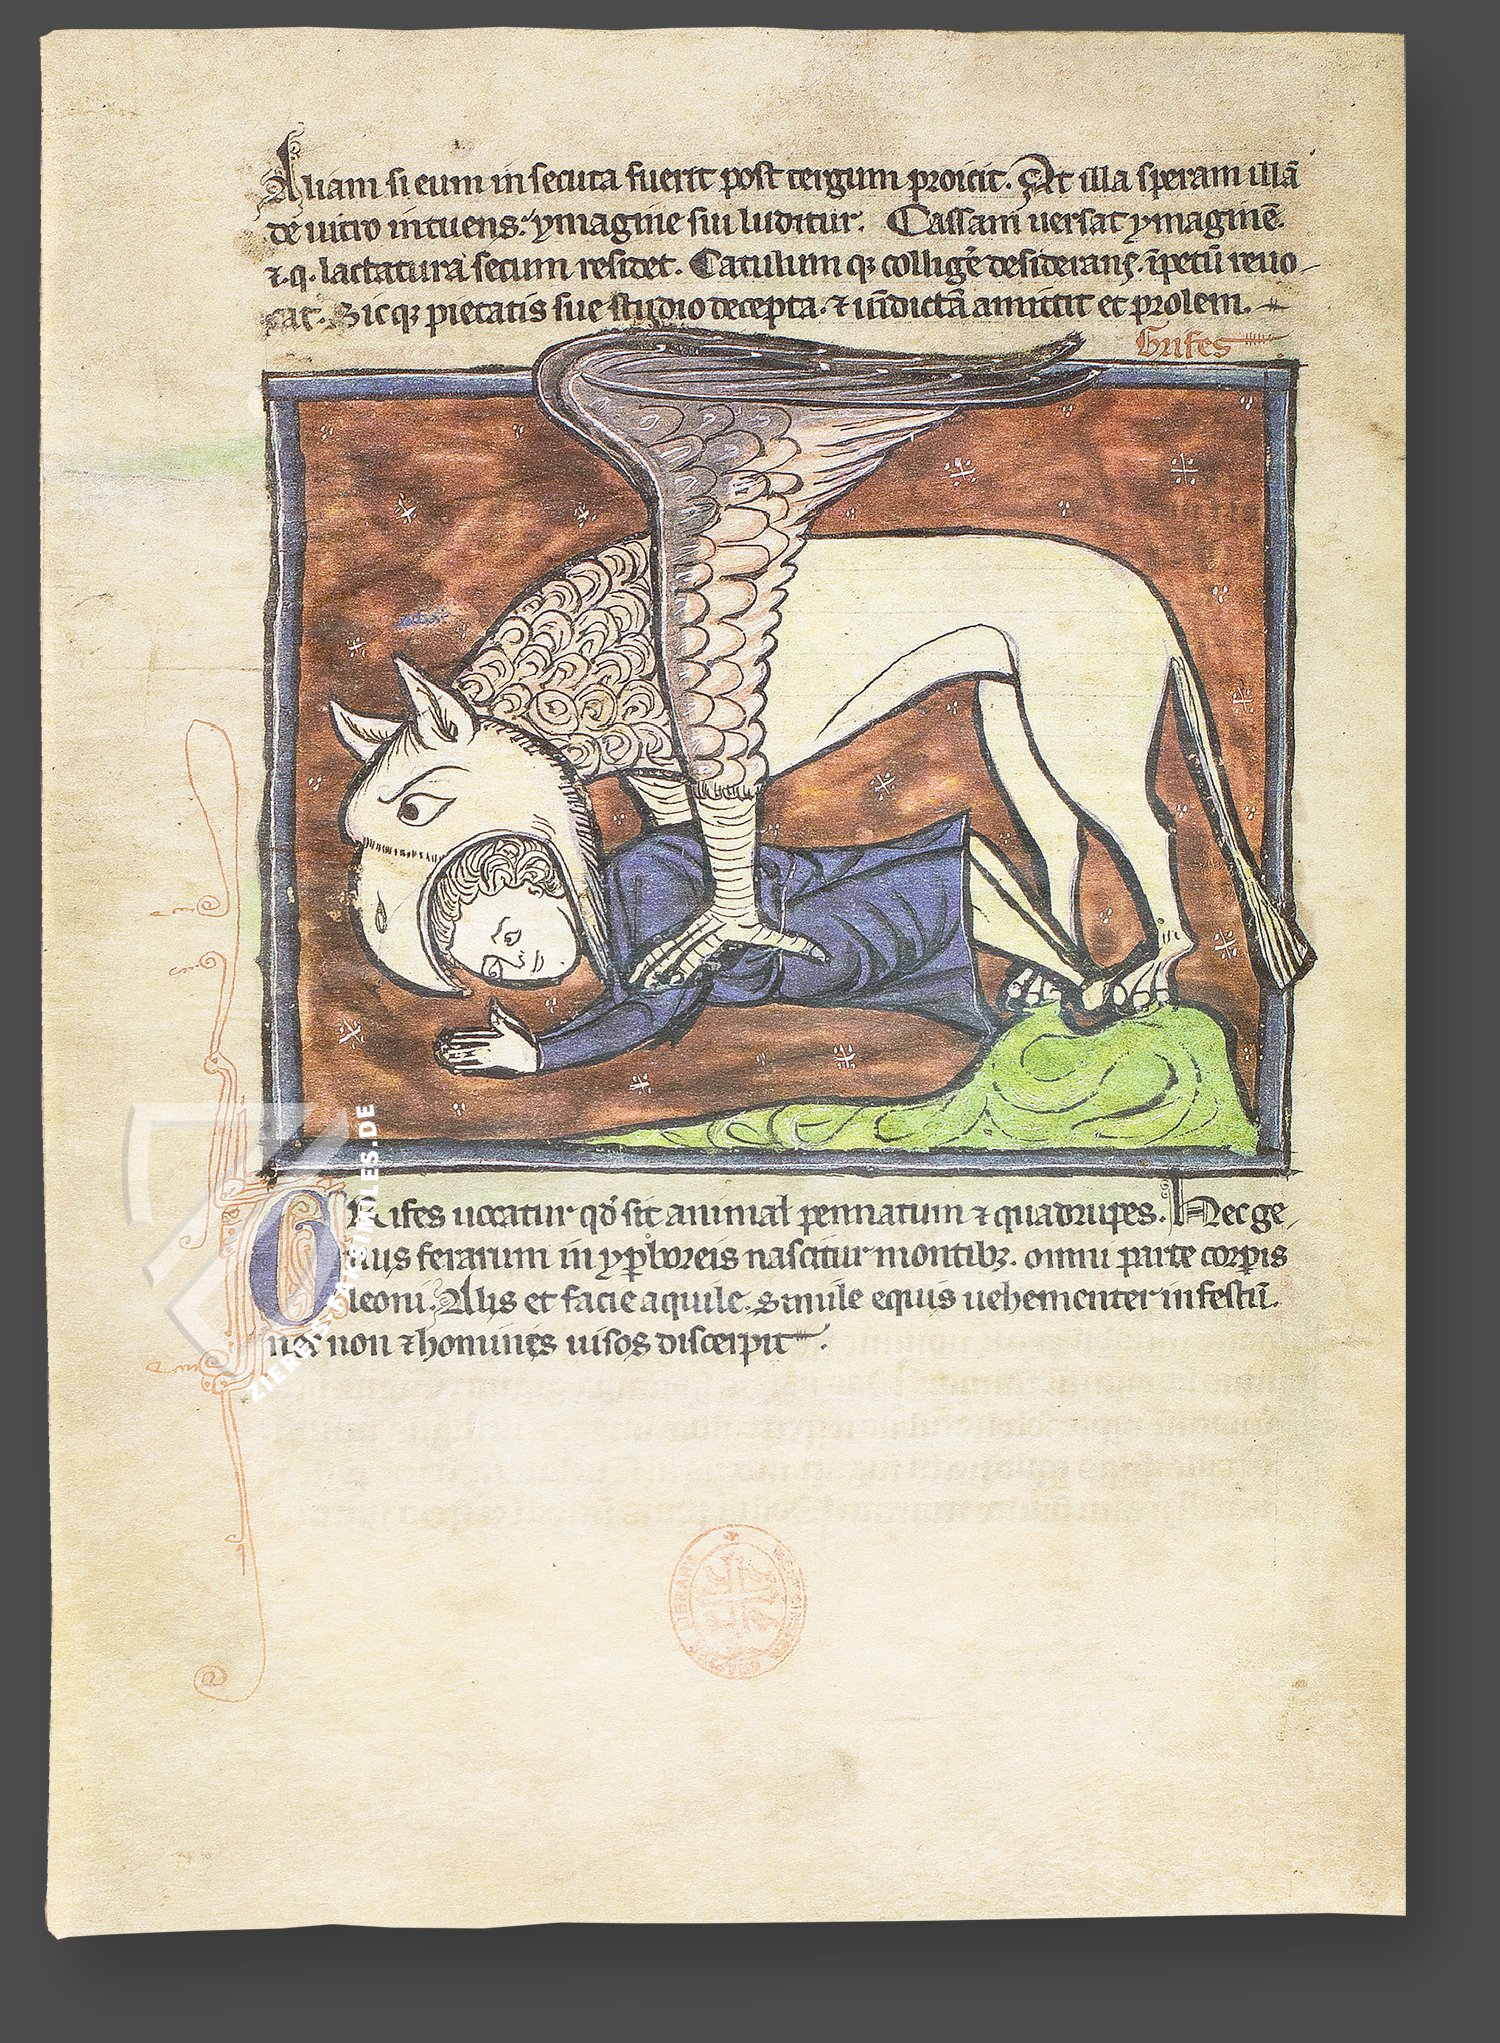 Aliam si eum insecuta fuerit post tergum proicit. At illa speram illā
de uitro intuens. ymagine sui luditur. Cassam uersat ymaginē.
⁊ q. lactatura fetum residet. Catulum qꝫ colligẽ desiderans. īpetū reuo
cat. Sicqꝫ pietatis sue studio decepta. ⁊ uīdictā amittit et prolem.
Grifes
GRifes uocatur qđ sit animal pennatum ⁊ quadrupes. Hec ge
nus ferarum in yꝑboreis nascitur montibꝫ. omni parte corꝑis
leoni. Alis et facie aquile simile equis uehementer infestū.
nec non ⁊ homines uisos discerpit.
ZIEREIS-FAKSIMILES.DE
LIBRARY